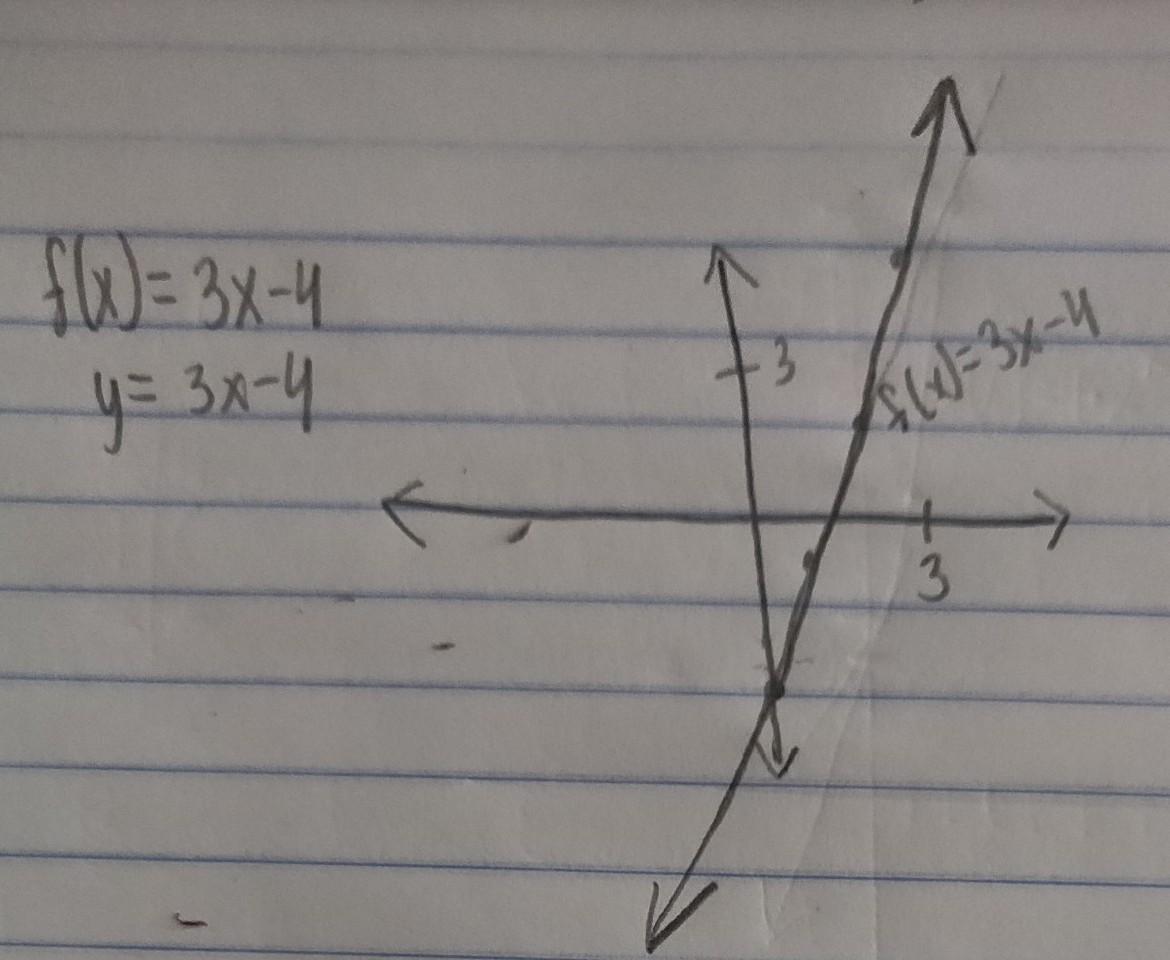 f(x)= 3x-4
y= 3x-4
3
f(x)=3x-4
3